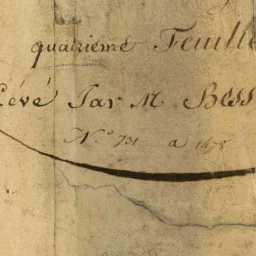 quatrieme Feuille
Levé Par M. Bess
N.° 731 a